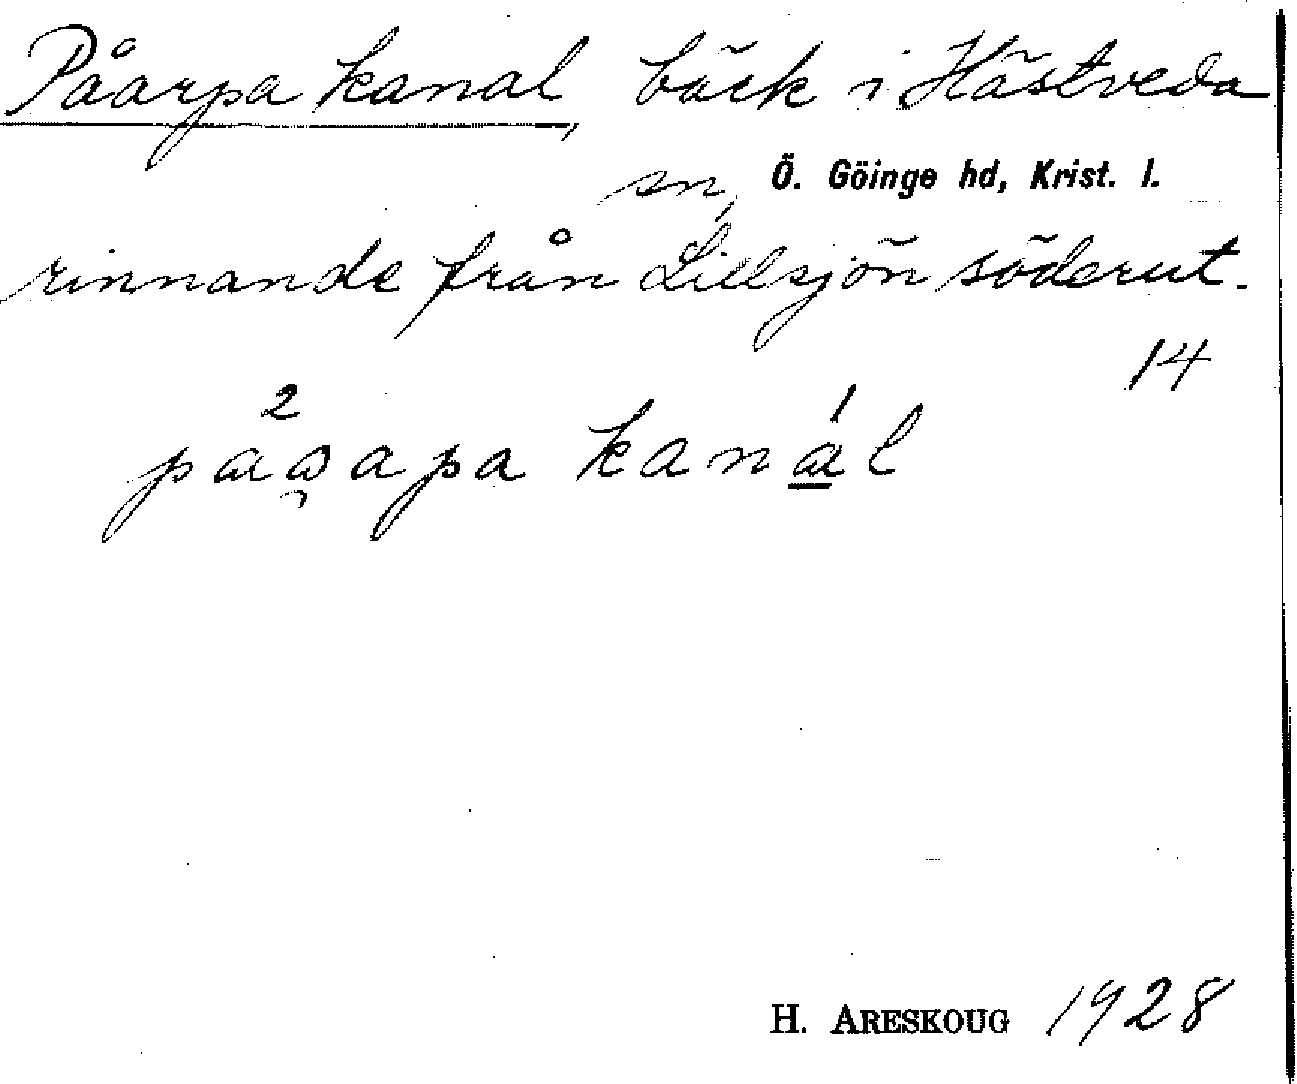 Påarpa kanal, bäck i Hästveda
sn, Ö. Göinge hd, Krist. l.
rinnande från Lillsjön söderut.
14
kanál
H. ARESKOUG 1928